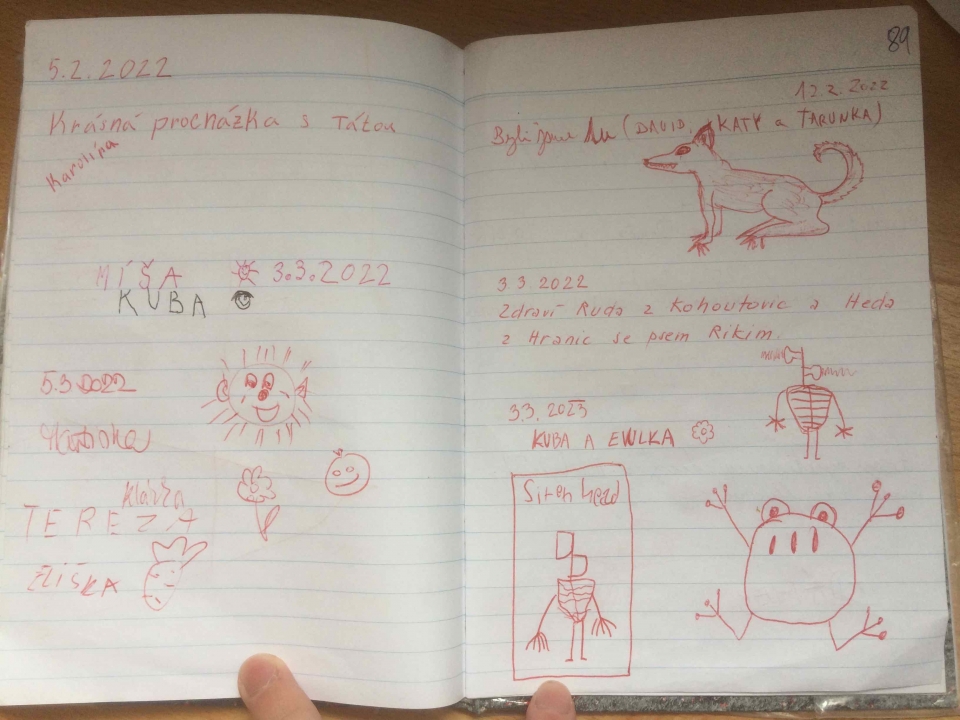 5.2.2022
Krásná procházka s Tátou
Karolína
MÍŠA 3.3.2022
KUBA
5.3 2022
Klárka
TEREZA
ELIŠKA
89
12.2.2022
Byli jsme tu (DAVID, KATY a TARUNKA)
3 3 2022
Zdraví Ruda z Kohoutovic a Heda
z Hranic se psem Rikim.
3.3. 2023
KUBA A EWLKA
Siren head